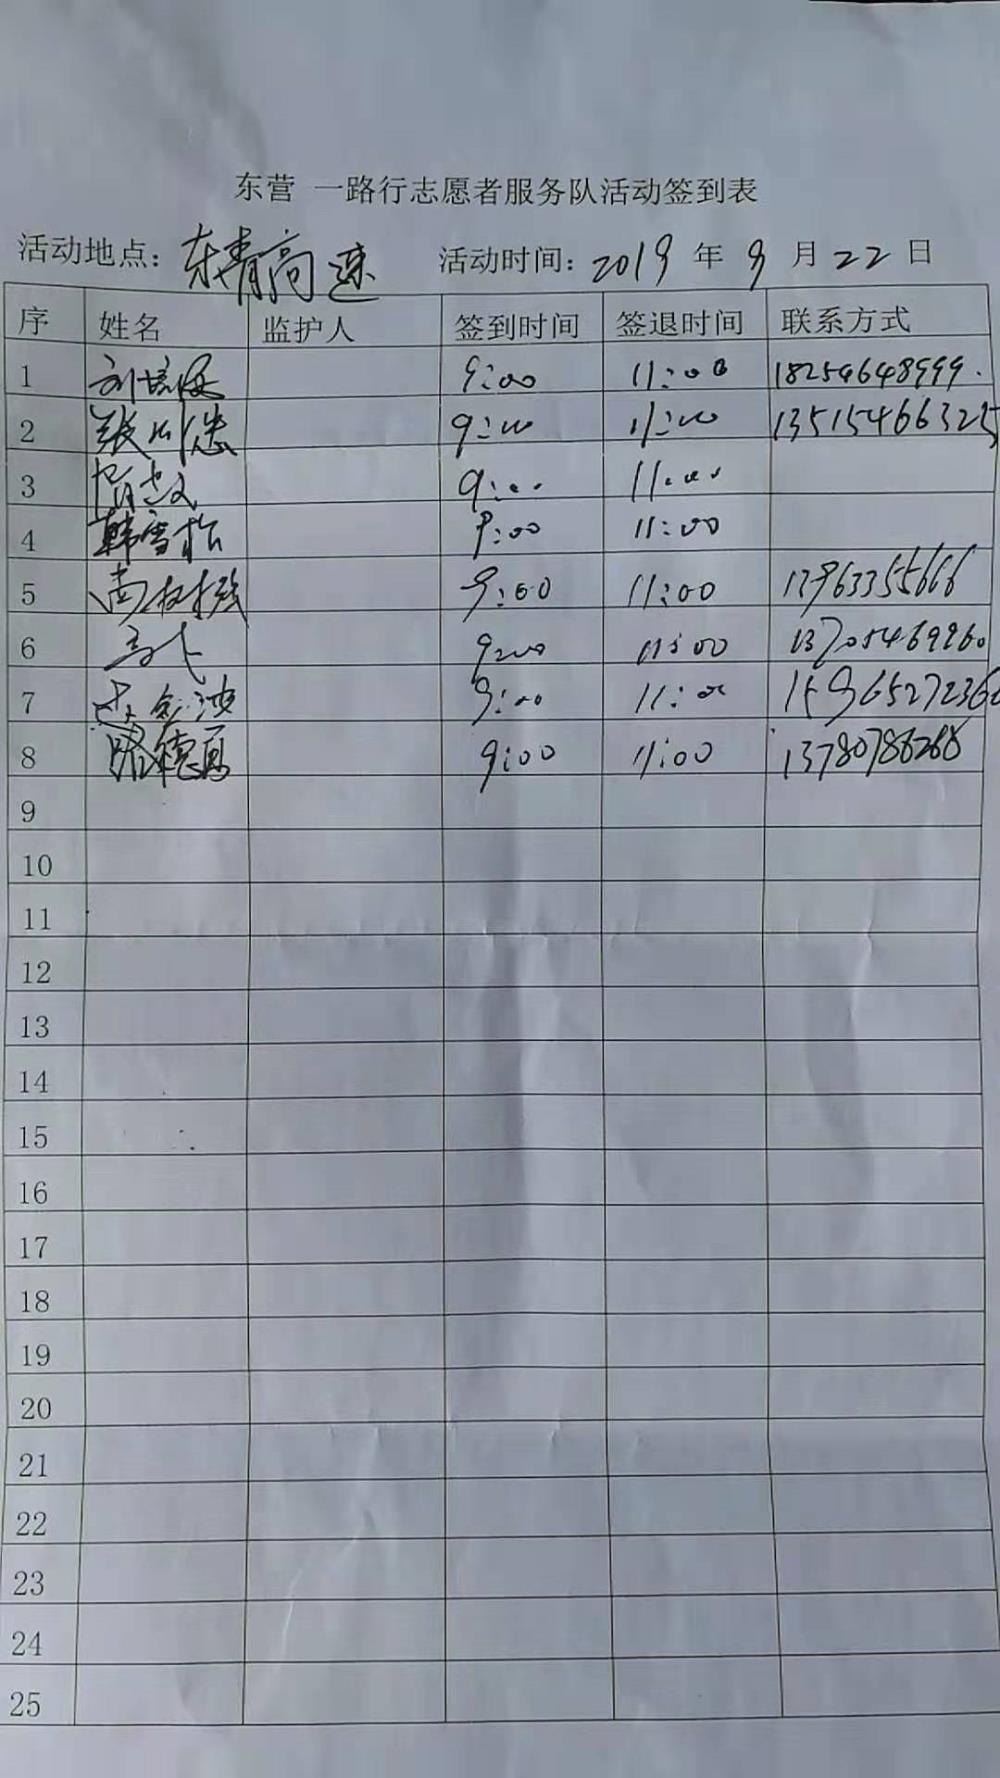 东营 一路行志愿者服务队活动签到表
活动地点：东青高速 活动时间：2019 年 9 月 22 日
序 姓名 监护人 签到时间 签退时间 联系方式
1 9:00 11:00 18254648999.
2 9:00 11:00 13515466325
3 9:00 11:00
4 韩雪松 9:00 11:00
5 尚树强 9:00 11:00 13963355666
6 马飞 9:00 11:00 13705469960
7 9:00 11:00 15965272360
8 路德夏 9:00 11:00 13780786268
9
10
11
12
13
14
15
16
17
18
19
20
21
22
23
24
25